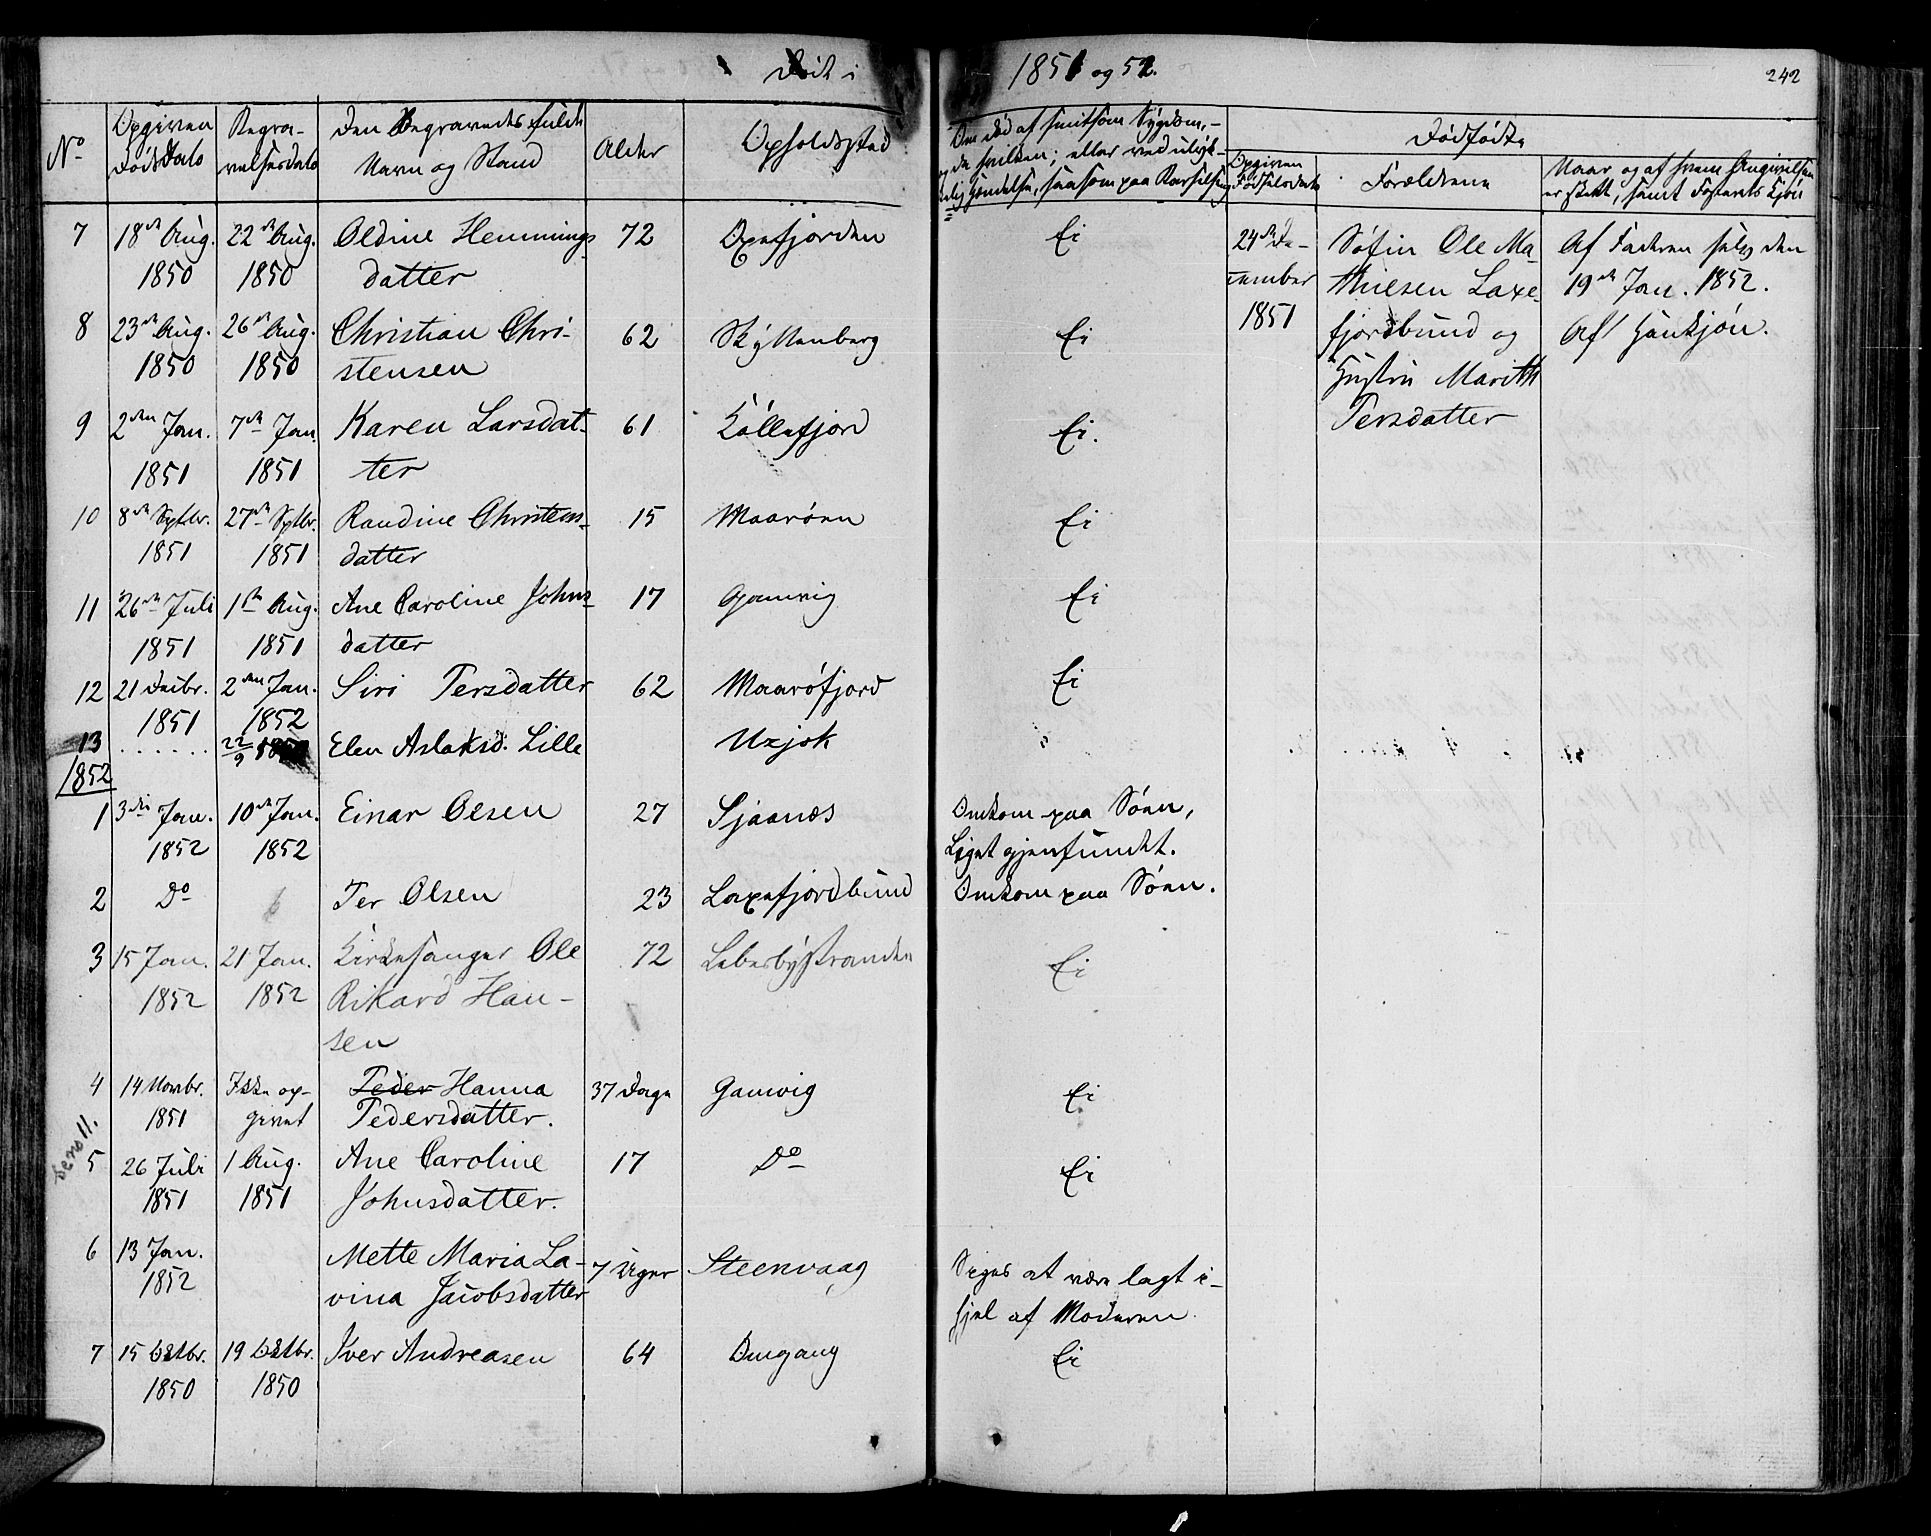 Død i 1851 og 52.
242
No
Opgiven Døds Dato
Begravelsesdato
Den Begravedes fulde Navn og Stand
Alder
Opholdssted
Om død af smitsom Sygdom,
og da hvilken; eller ved ulyk-
kelig Hændelse, saasom paa Barselseng
Dødfødte
Opgiven Fødselsdato
Forældrene
Naar og af hvem Angivelsen
er skeet, samt Fosterets Kjøn
7 18de Aug. 22de Aug. Oldine Hemmings 72 Oxefjorden Ei
1850 1850 datter
8 23de Aug. 26de Aug. Christian Chri- 62 Skyttenberg Ei
1850 1850 stensen
9 2den Jan. 7de Jan. Karen Larsdat- 61 Kollefjord Ei.
1851 1851 ter
10 8de Septbr. 27de Septbr. Randine Christens- 15 Maarøen Ei
1851 1851 datter
11 26de Juli 1ste Aug. Ane Caroline Johns- 17 Gamvig Ei
1851 1851 datter
12 21 Decbr. 2den Jan. Siri Persdatter 62 Maarøfjord Ei
1851 1852
13 ...... 22/9 Elen Aslaksd. Lille Uxjok
1852
1 3die Jan. 10de Jan. Einar Olsen 27 Sjaanæs Omkom paa Søen,
1852 1852 Liget gjenfundet.
2 Do Per Olsen 23 Laxefjordbund Omkom paa Søen.
3 15 Jan. 21 Jan. Kirkesanger Ole 72 Lebesbystranden Ei
1852 1852 Rikard Han-
sen
4 14 Novbr. Ikke op- Peder Hanna 37 Dage Gamvig Ei
1851 givet Pedersdatter.
se no 11.
5 26 Juli 1 Aug. Ane Caroline 17 Do Ei
1851 1851 Johnsdatter.
6 13 Jan. Mette Maria La- 7 Uger Steenvaag Siges at være lagt i-
1852 vina Jacobsdatter hjel af Moderen.
7 15 Octbr. 19 Octbr. Iver Andreasen 64 Omgang Ei
1850 1850
24de De- Søfin Ole Ma- Af Faderen selv den
cember thiesen Laxe- 19de Jan. 1852.
1851 fjordbund og Af Hankjøn.
Hustru Marith
Persdatter